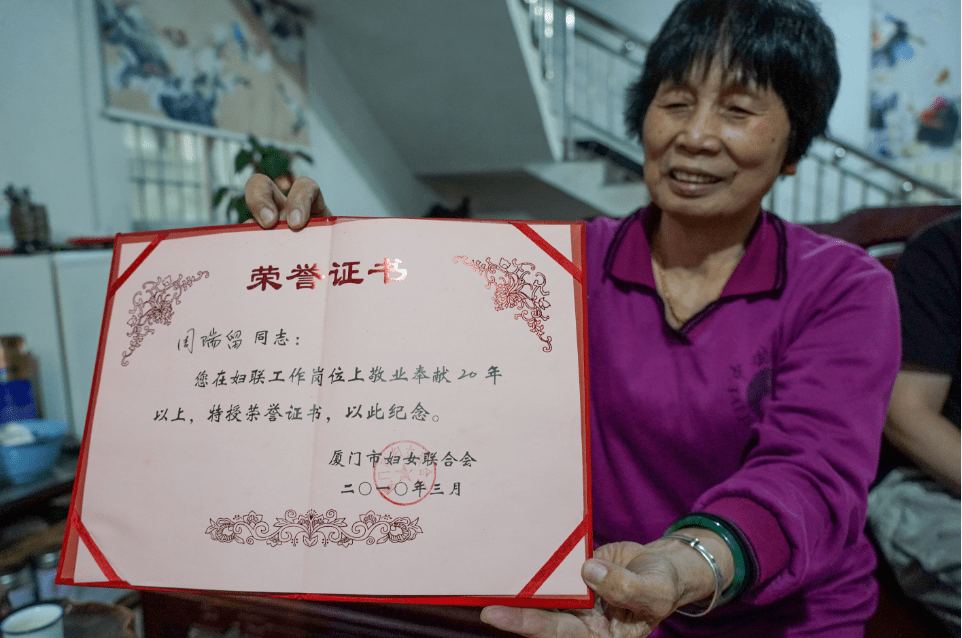 荣誉证书
周瑞留 同志：
您在妇联工作岗位上敬业奉献20年
以上，特授荣誉证书，以此纪念。
厦门市妇女联合会
二〇一〇年三月